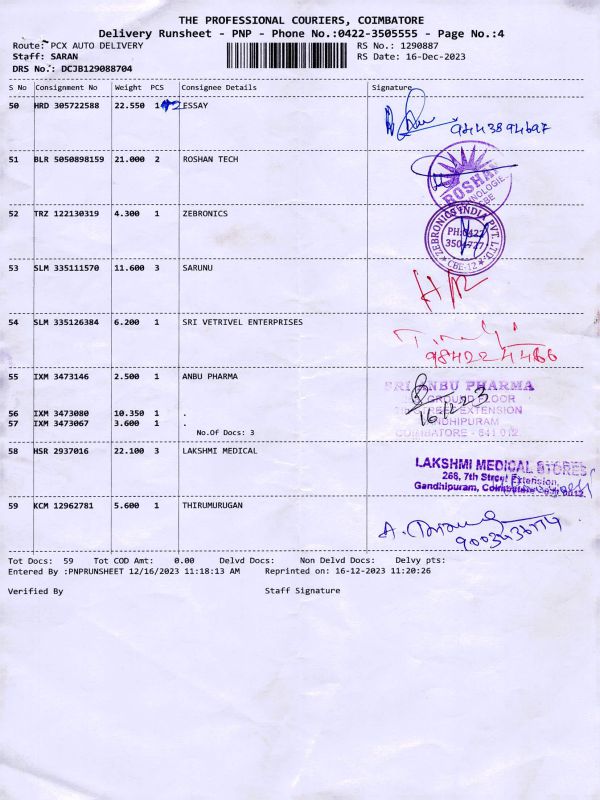 THE PROFESSIONAL COURIERS, COIMBATORE
Delivery Runsheet - PNP - Phone No.:0422-3505555 - Page No.:4
Route: PCX AUTO DELIVERY
RS No.: 1290887
Staff: SARAN
RS Date: 16-Dec-2023
DRS No.: DCJB129088704
S No Consignment No Weight PCS Consignee Details Signature
50 HRD 305722588 22.550 1 2 ESSAY
9443894697
51 BLR 5050898159 21.000 2 ROSHAN TECH
ROSHAN
52 TRZ 122130319 4.300 1 ZEBRONICS
ZEBRONICS INDIA PVT. LTD.
PH:0422
3504727
CBE-12
53 SLM 335111570 11.600 3 SARUNU
54 SLM 335126384 6.200 1 SRI VETRIVEL ENTERPRISES
9842244466
55 IXM 3473146 2.500 1 ANBU PHARMA
SRI ANBU PHARMA
GROUND FLOOR
STREET EXTENSION
GANDHIPURAM
COIMBATORE - 641 012.
16.12.23
56 IXM 3473080 10.350 1 .
57 IXM 3473067 3.600 1 .
No.Of Docs: 3
58 HSR 2937016 22.100 3 LAKSHMI MEDICAL
LAKSHMI MEDICAL STORES
268, 7th Street Extension,
Gandhipuram,
59 KCM 12962781 5.600 1 THIRUMURUGAN
Tot Docs: 59 Tot COD Amt: 0.00 Delvd Docs: Non Delvd Docs: Delvy pts:
Entered By :PNPRUNSHEET 12/16/2023 11:18:13 AM Reprinted on: 16-12-2023 11:20:26
Verified By Staff Signature